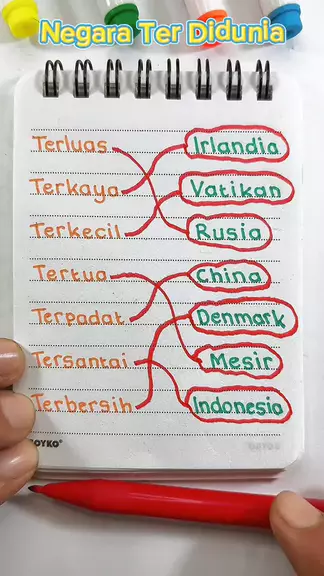 Negara Ter Didunia
Terluas Irlandia
Terkaya Vatikan
Terkecil Rusia
Tertua China
Terpadat Denmark
Tersantai Mesir
Terbersih Indonesia
JOYKO®